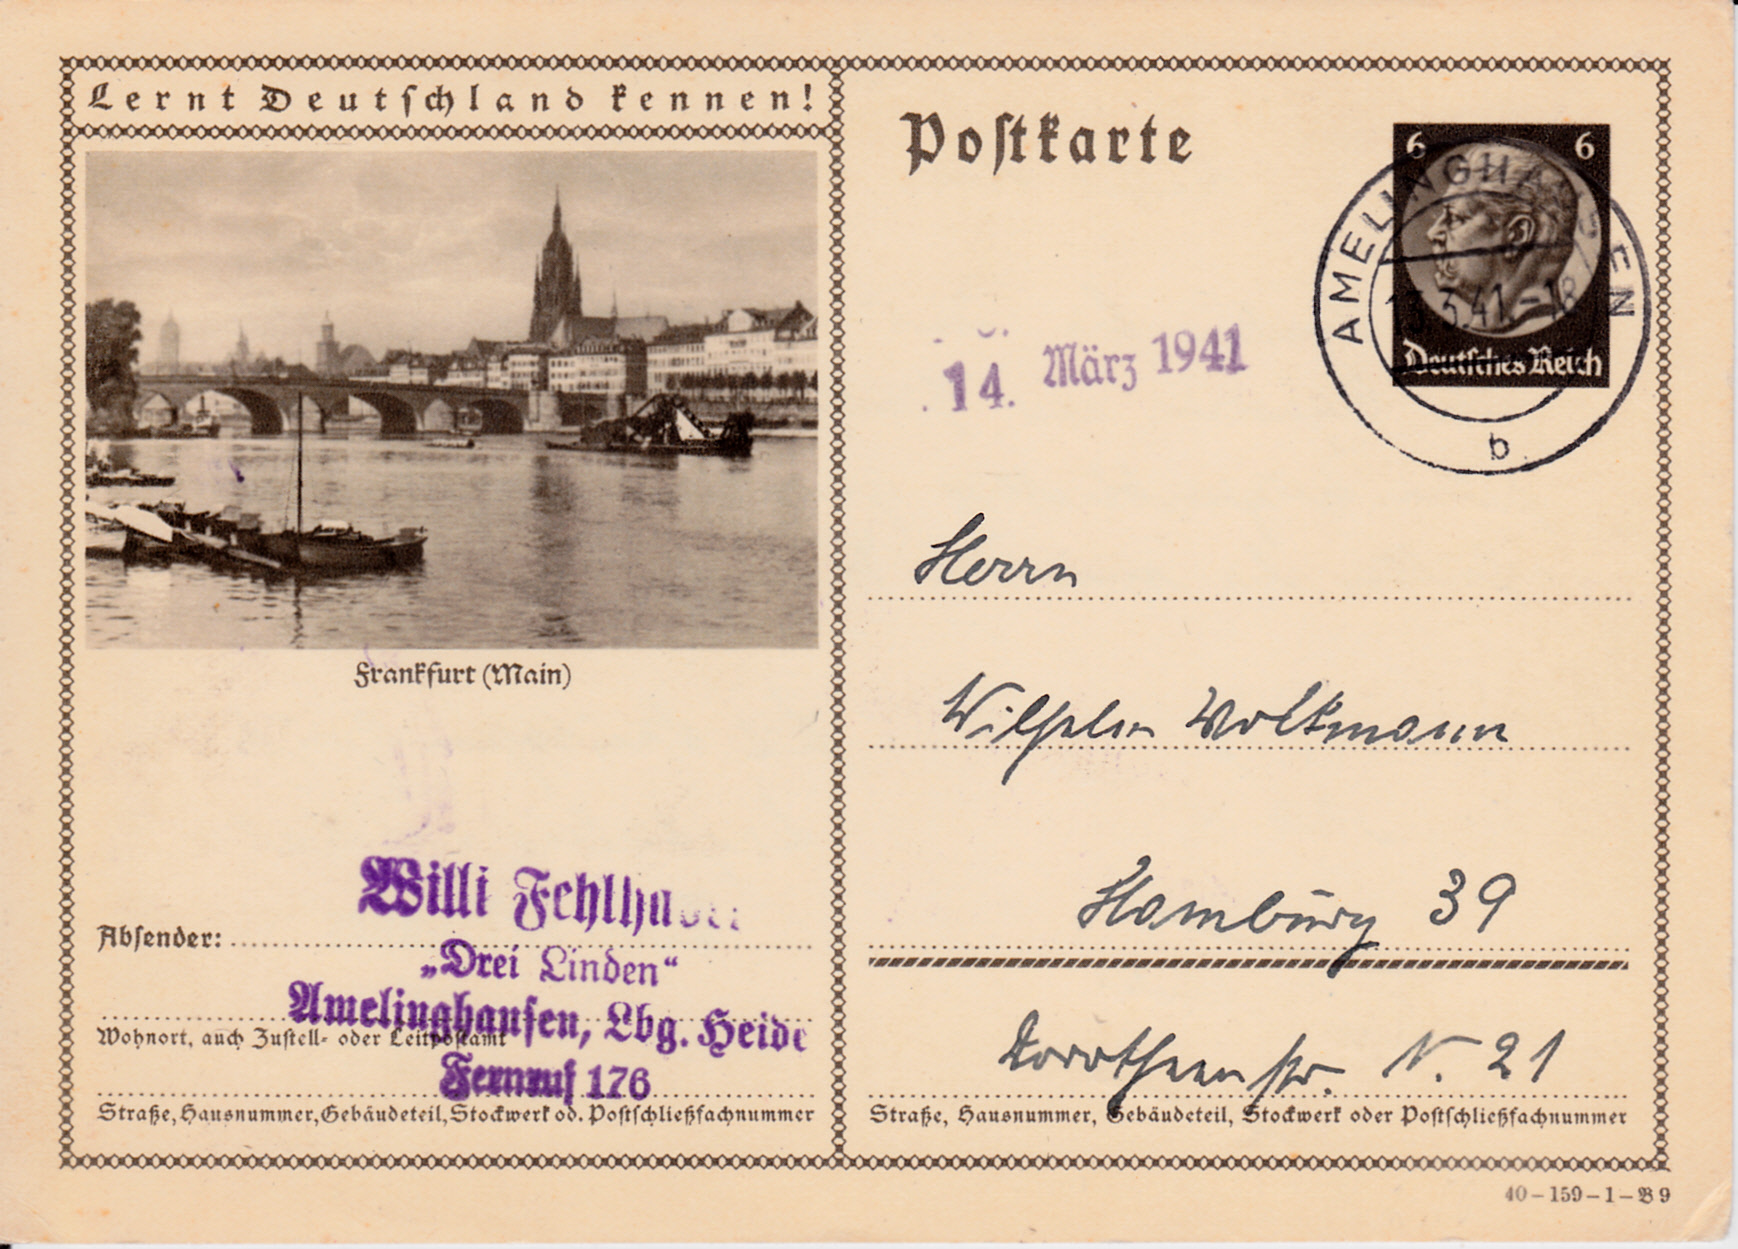 Lernt Deutschland kennen!
Frankfurt (Main)
Willi
Absender:
„Drei Linden“
Amelinghausen, Lbg. Heide
Wohnort, auch Zustell- oder Leitpostamt
Fernruf 176
Straße, Hausnummer, Gebäudeteil, Stockwerk od. Postschließfachnummer
Postkarte
6 6
Deutsches Reich
AMELINGHAUSEN
3.41.-18
b
14. März 1941
Herrn
Wilhelm Volkmann
Hamburg 39
Dorotheenstr. N. 21
Straße, Hausnummer, Gebäudeteil, Stockwerk oder Postschließfachnummer
40-159-1-B9